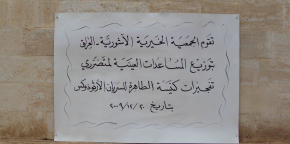 تقوم الجمعية الخيرية الآشورية - العراق
بتوزيع المساعدات العينية لمتضرري
تفجيرات كنيسة الطاهرة للسريان الأرثودوكس
بتاريخ ٢٠٠٩/١٢/٢٠